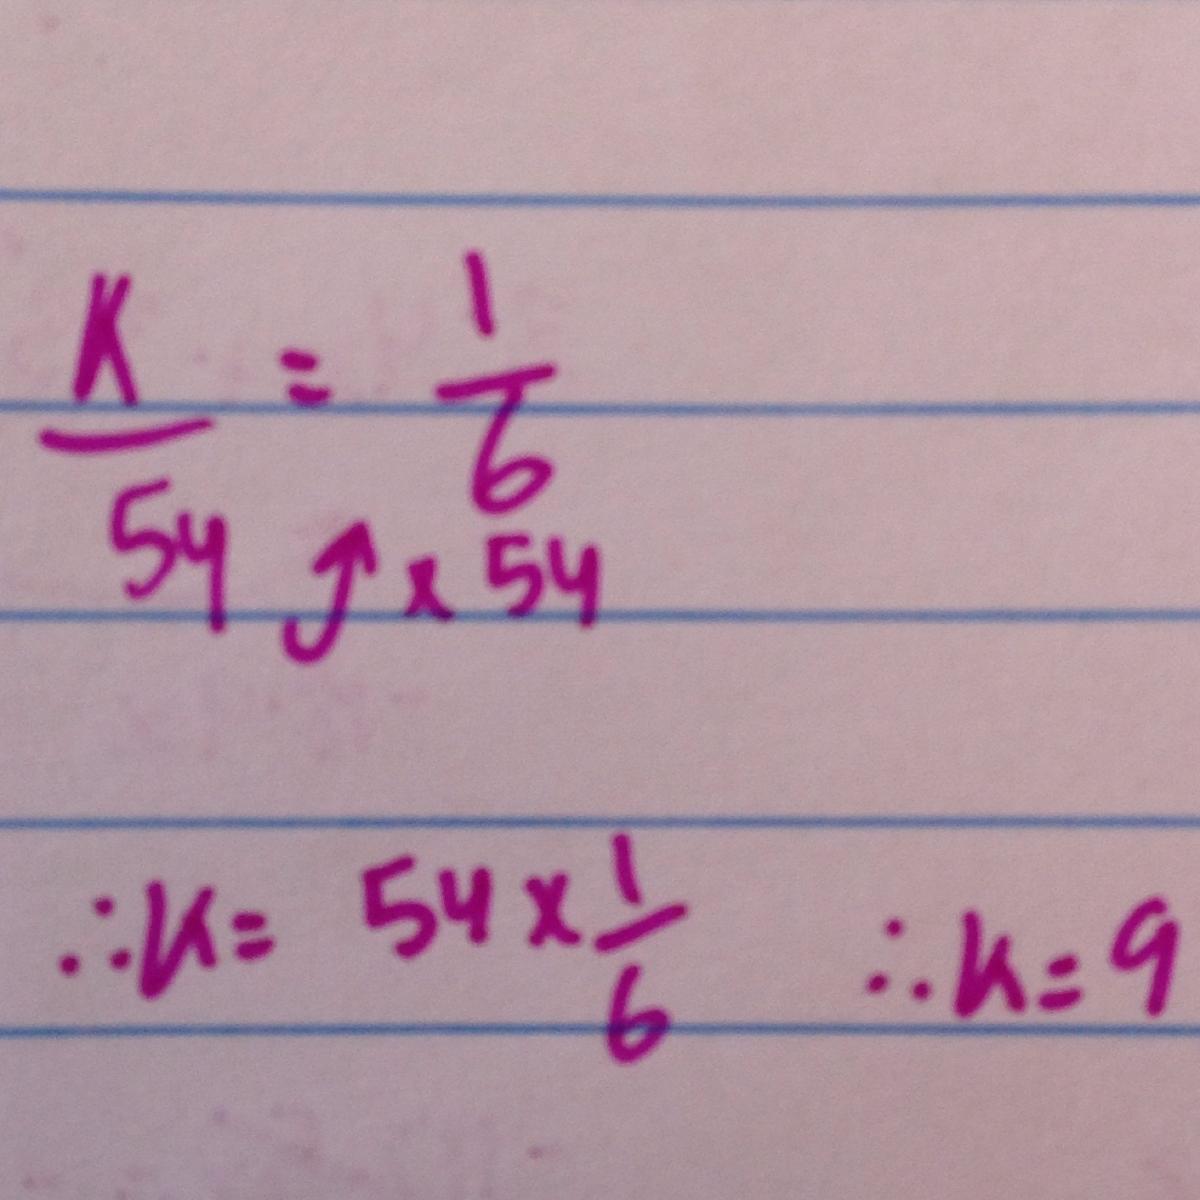 K/54 = 1/6
⤴ x 54
∴ K = 54 x 1/6 ∴ k = 9